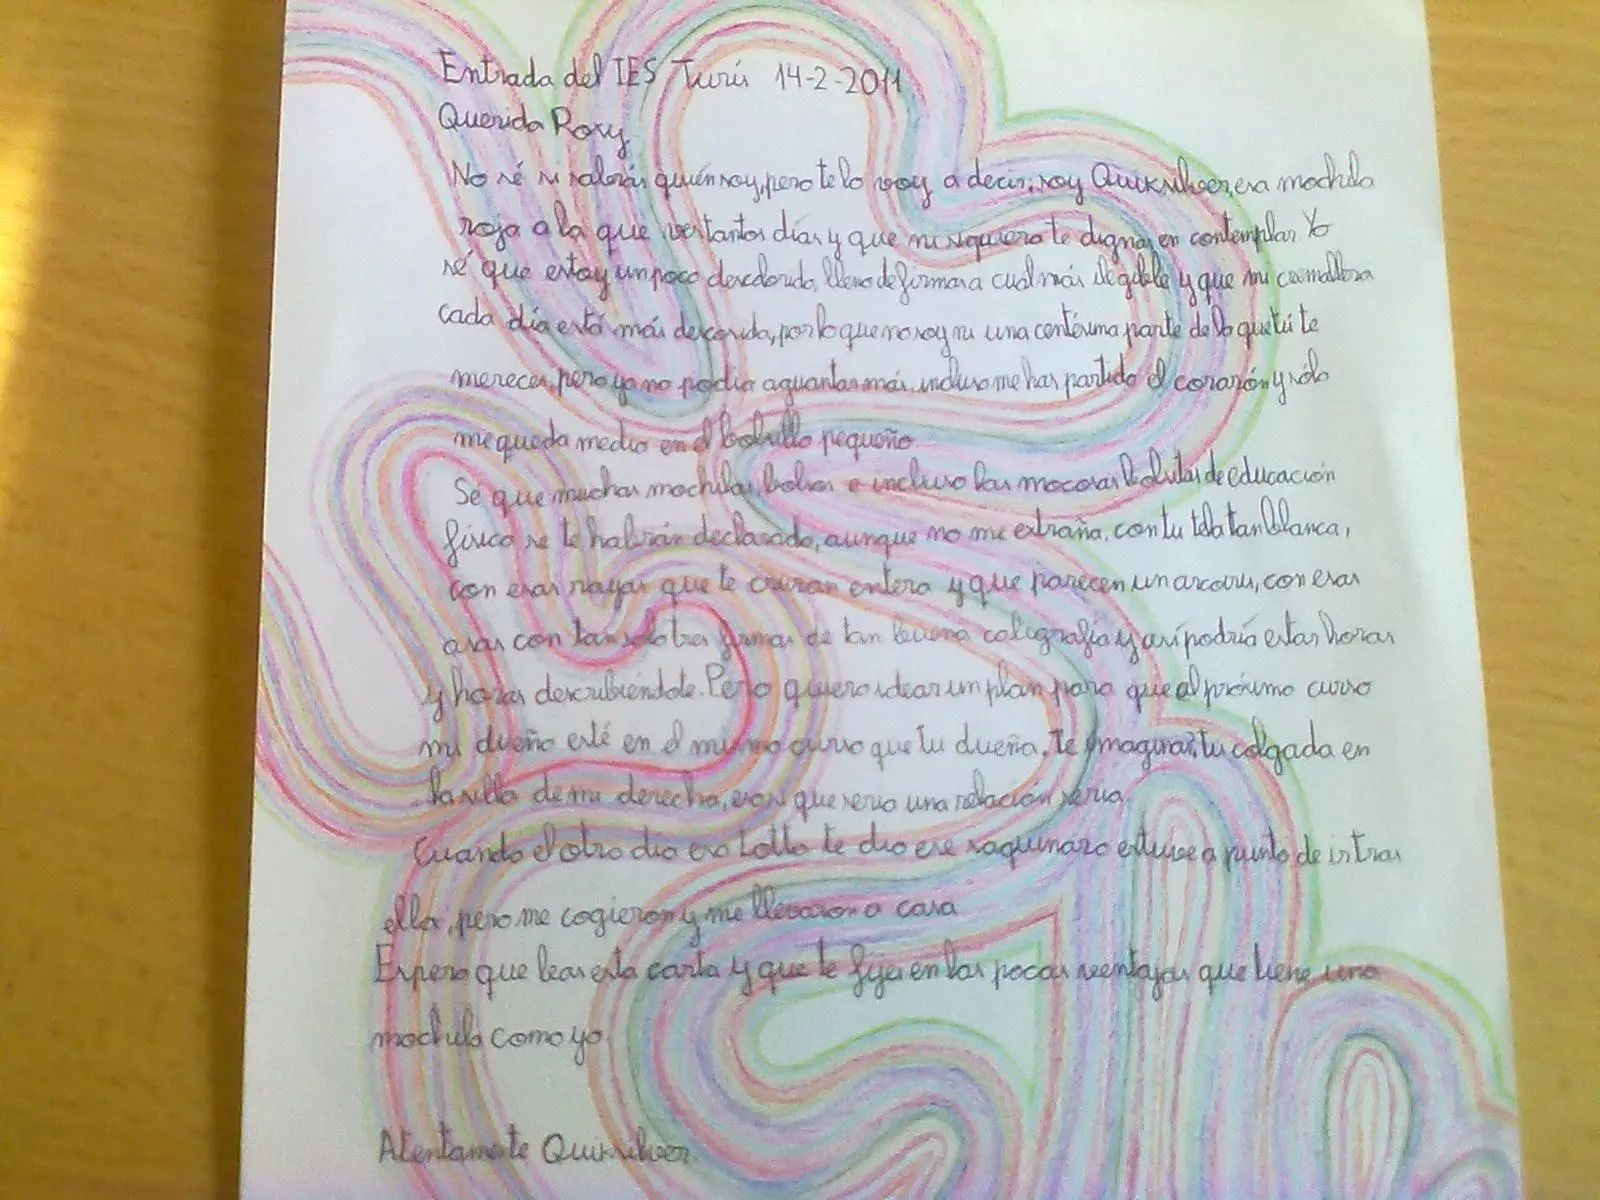 Entrada del IES Turís 14-2-2011
Querida Roxy
No sé si sabrás quién soy, pero te lo voy a decir; soy Quiksilver, esa mochila
roja a la que ves tantos días y que ni siquiera te dignas en contemplar. Yo
sé que estoy un poco descolorido, lleno de firmas a cual más ilegible y que mi cremallera
cada día está más descosida, por lo que no soy ni una centésima parte de lo que tú te
mereces, pero ya no podía aguantar más, incluso me has partido el corazón y sólo
me queda medio en el bolsillo pequeño.
Sé que muchas mochilas, bolsos e incluso las mocosas bolsitas de educación
física se te habrán declarado, aunque no me extraña, con tu tela tan blanca,
con esas rayas que te cruzan entera y que parecen un arcoiris, con esas
asas con tan solo tres firmas de tan buena caligrafía y así podría estar horas
y horas describiéndote. Pero quiero idear un plan para que al próximo curso
mi dueño esté en el mismo curso que tu dueña, te imaginas, tu colgada en
la silla de mi derecha, eso si que sería una relación seria.
Cuando el otro día esa Lotto te dio ese saquinazo estuve a punto de ir tras
ella, pero me cogieron y me llevaron a casa
Espero que leas esta carta y que te fijes en las pocas ventajas que tiene una
mochila como yo.
Atentamente Quiksilver.